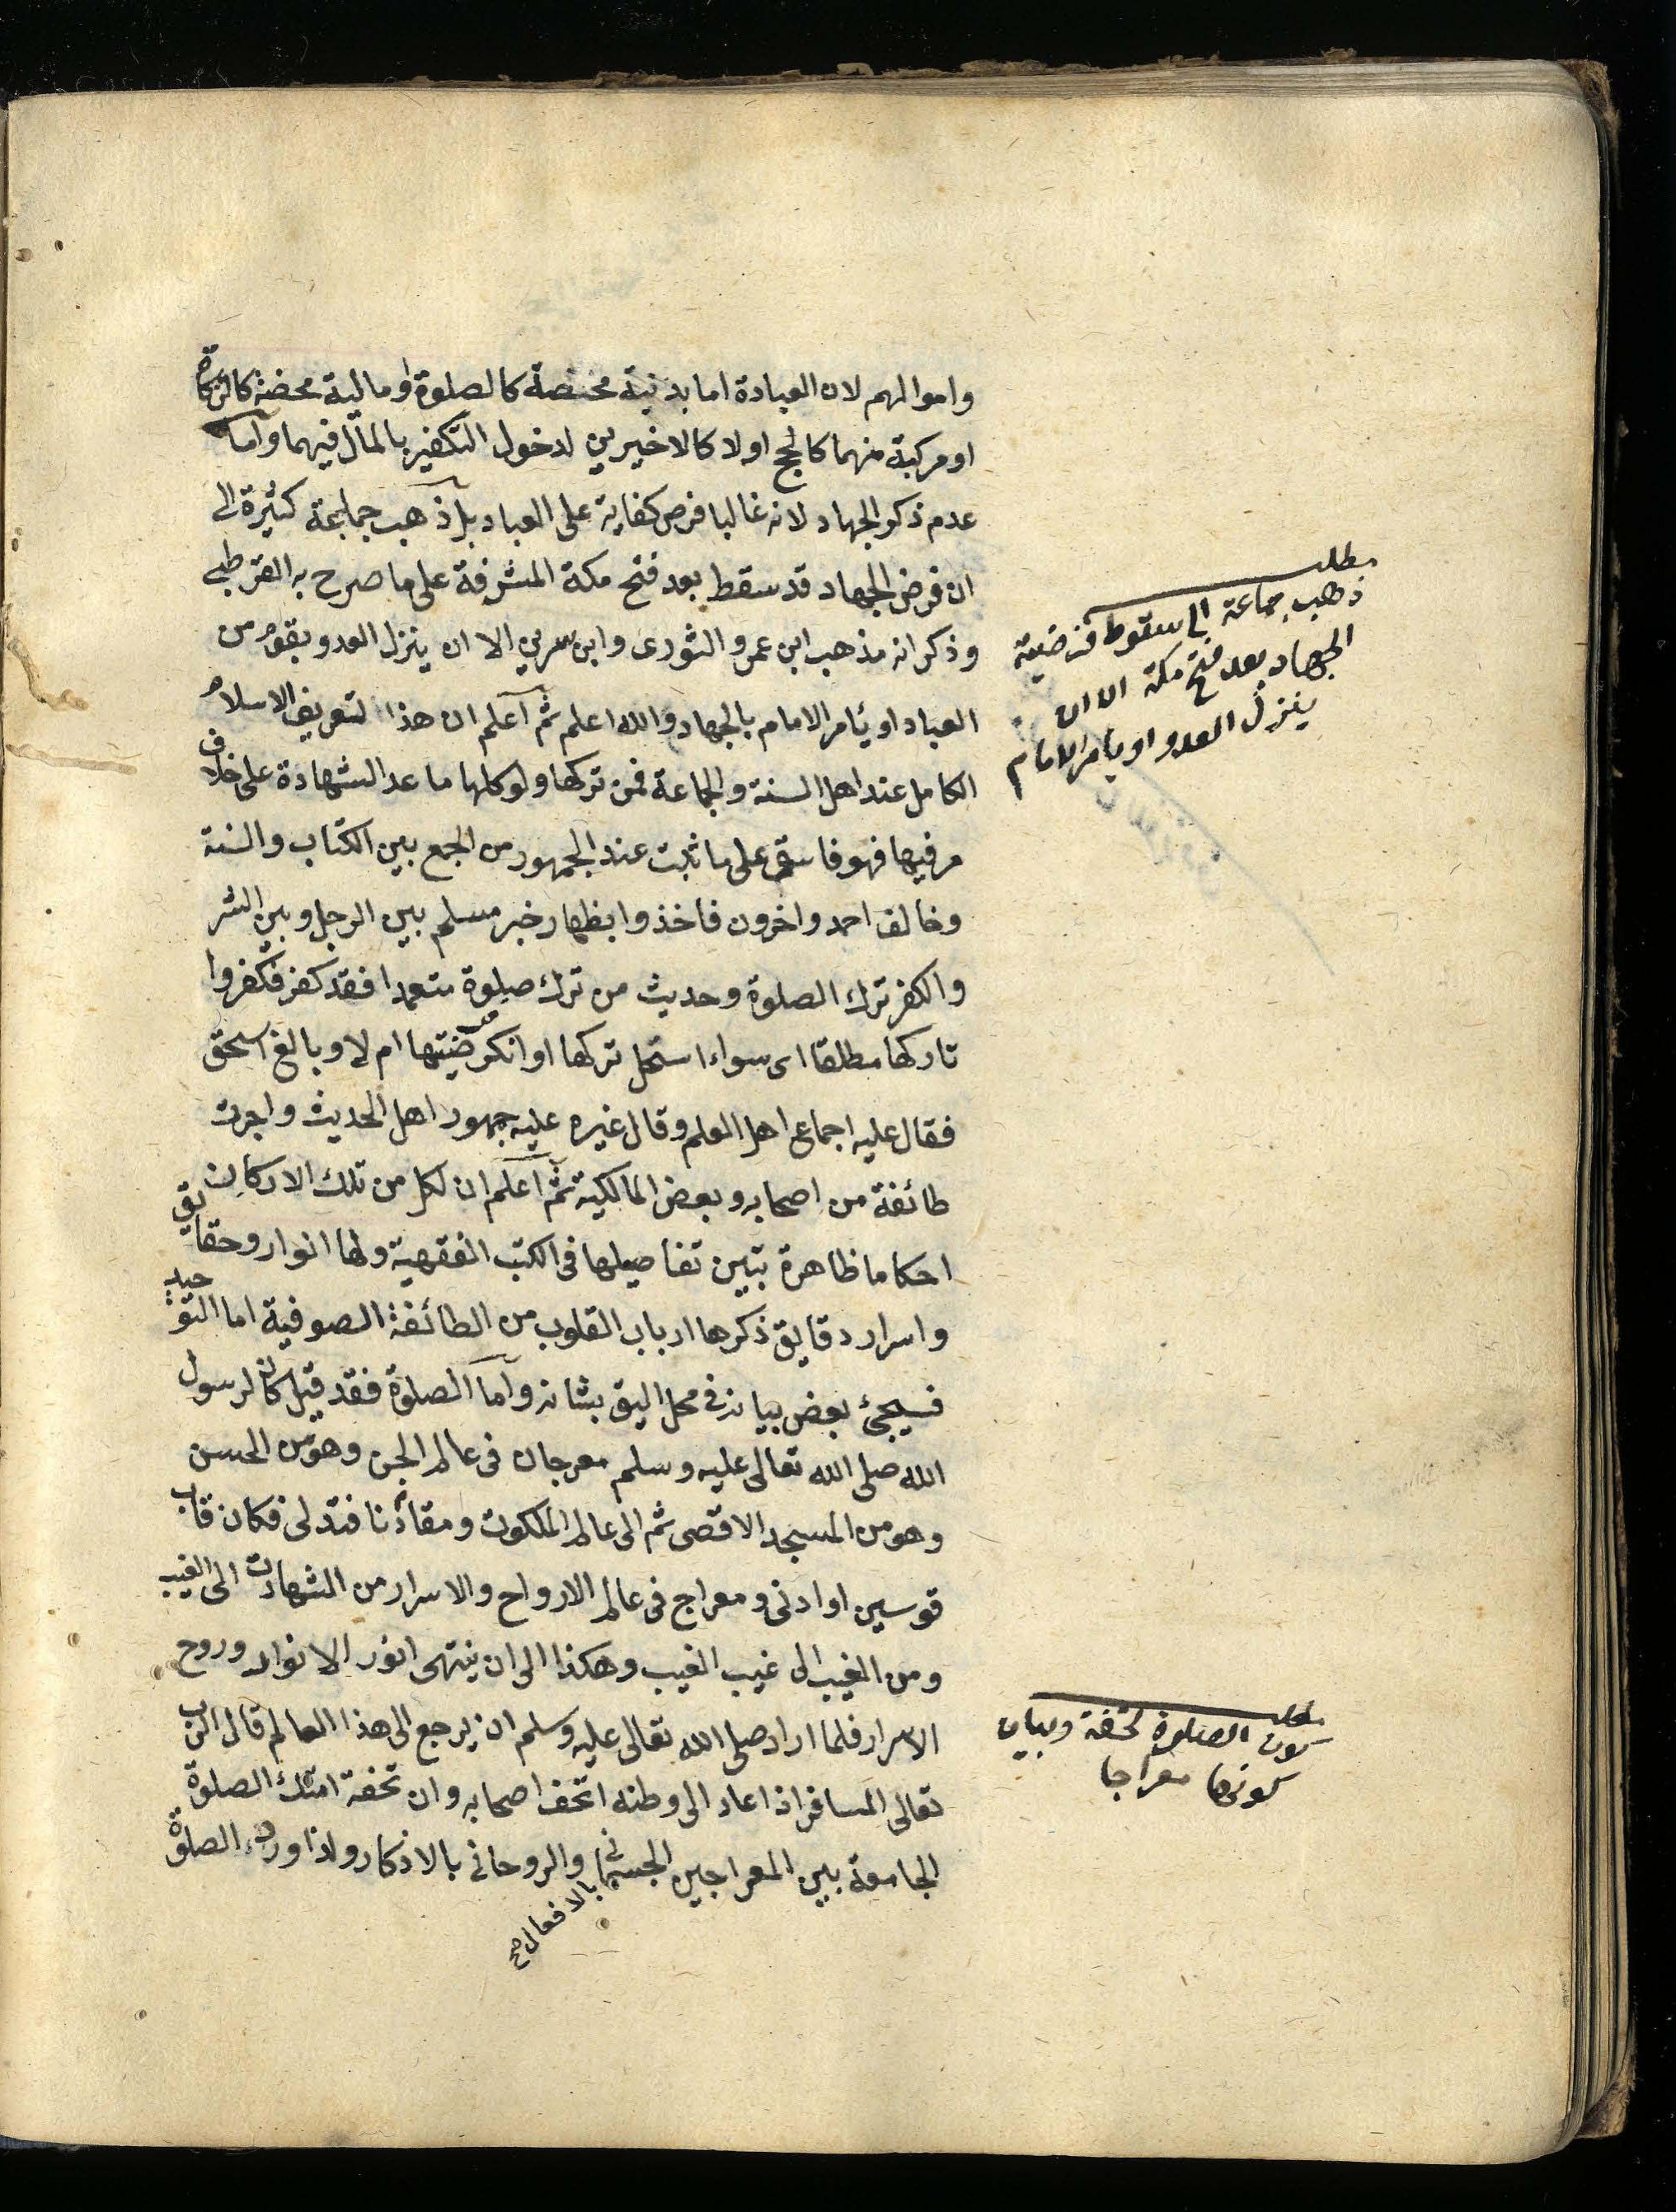 واموالهم لان العبادة اما بدنية مختصة كالصلوة او مالية محضة كالزكاة
او مركبة منهما كالحج اولا كالاخيرين لدخول التكفير بالمال فيهما واما
عدم ذكر الجهاد لانه غالبا فرض كفاية على العباد بل ذهب جماعة كثيرة الى
ان فرض الجهاد قد سقط بعد فتح مكة المشرفة على ما صرح به القرطبى
وذكر انه مذهب ابن عمر والثورى وابن سرين الا ان ينزل العدو بقوم من
العباد او يأمر الامام بالجهاد والله اعلم ثم اعلم ان هذا لتعريف الاسلام
الكامل عند اهل السنة والجماعة فمن تركها ولو كلها ما عد الشهادة على خلاف
مر فيها فهو فاسق على ما ثبت عند الجمهور من الجمع بين الكتاب والسنة
وخالف احمد واخرون فاخذوا بظهار خبر مسلم بين الرجل وبين الشر
والكفر ترك الصلوة وحديث من ترك صلوة متعمدا فقد كفر فكفروا
تاركها مطلقا اى سواء استحل تركها او انكر فرضيتها ام لا وبالغ اسحق
فقال عليه اجماع اهل العلم وقال غيره عليه جمهور اهل الحديث واجرت
طائفة من اصحابه وبعض المالكية ثم اعلم ان لكل من تلك الاركان
احكاما ظاهرة تبين تفاصيلها فى الكتب الفقهية ولها انوار وحقايق
واسرار دقايق ذكرها ارباب القلوب من الطائفة الصوفية اما التوحيد
فسيجئ بعض بيانه في محل اليق بشانه واما الصلوة فقد قيل كان لرسول
الله صلى الله تعالى عليه وسلم معرجان فى عالم الجن وهو من الحسن
وهو من المسجد الاقصى ثم الى عالم الملكوت ومقام دنا فتدلى فكان قاب
قوسين او ادنى ومعراج فى عالم الارواح والاسرار من الشهادت الى الغيب
ومن الغيب الى غيب الغيب وهكذا الى ان ينتهى انور الانوار وروح
الاسرار فلما اراد صلى الله تعالى عليه وسلم ان يرجع الى هذا العالم قال الرب
تعالى المسافر اذا عاد الى وطنه اتحف اصحابه وان تحفة امتك الصلوة
الجامعة بين المعراجين الجسمانى والروحانى بالاذكار ولذا ورد الصلوة
بالافعال صح
مطلب
ذهب جماعة الى سقوط فرضية
الجهاد بعد فتح مكة الا ان
ينزل العدو او يأمر الامام
مطلب
كون الصلوة تحفة وبيان
كونها معراجا